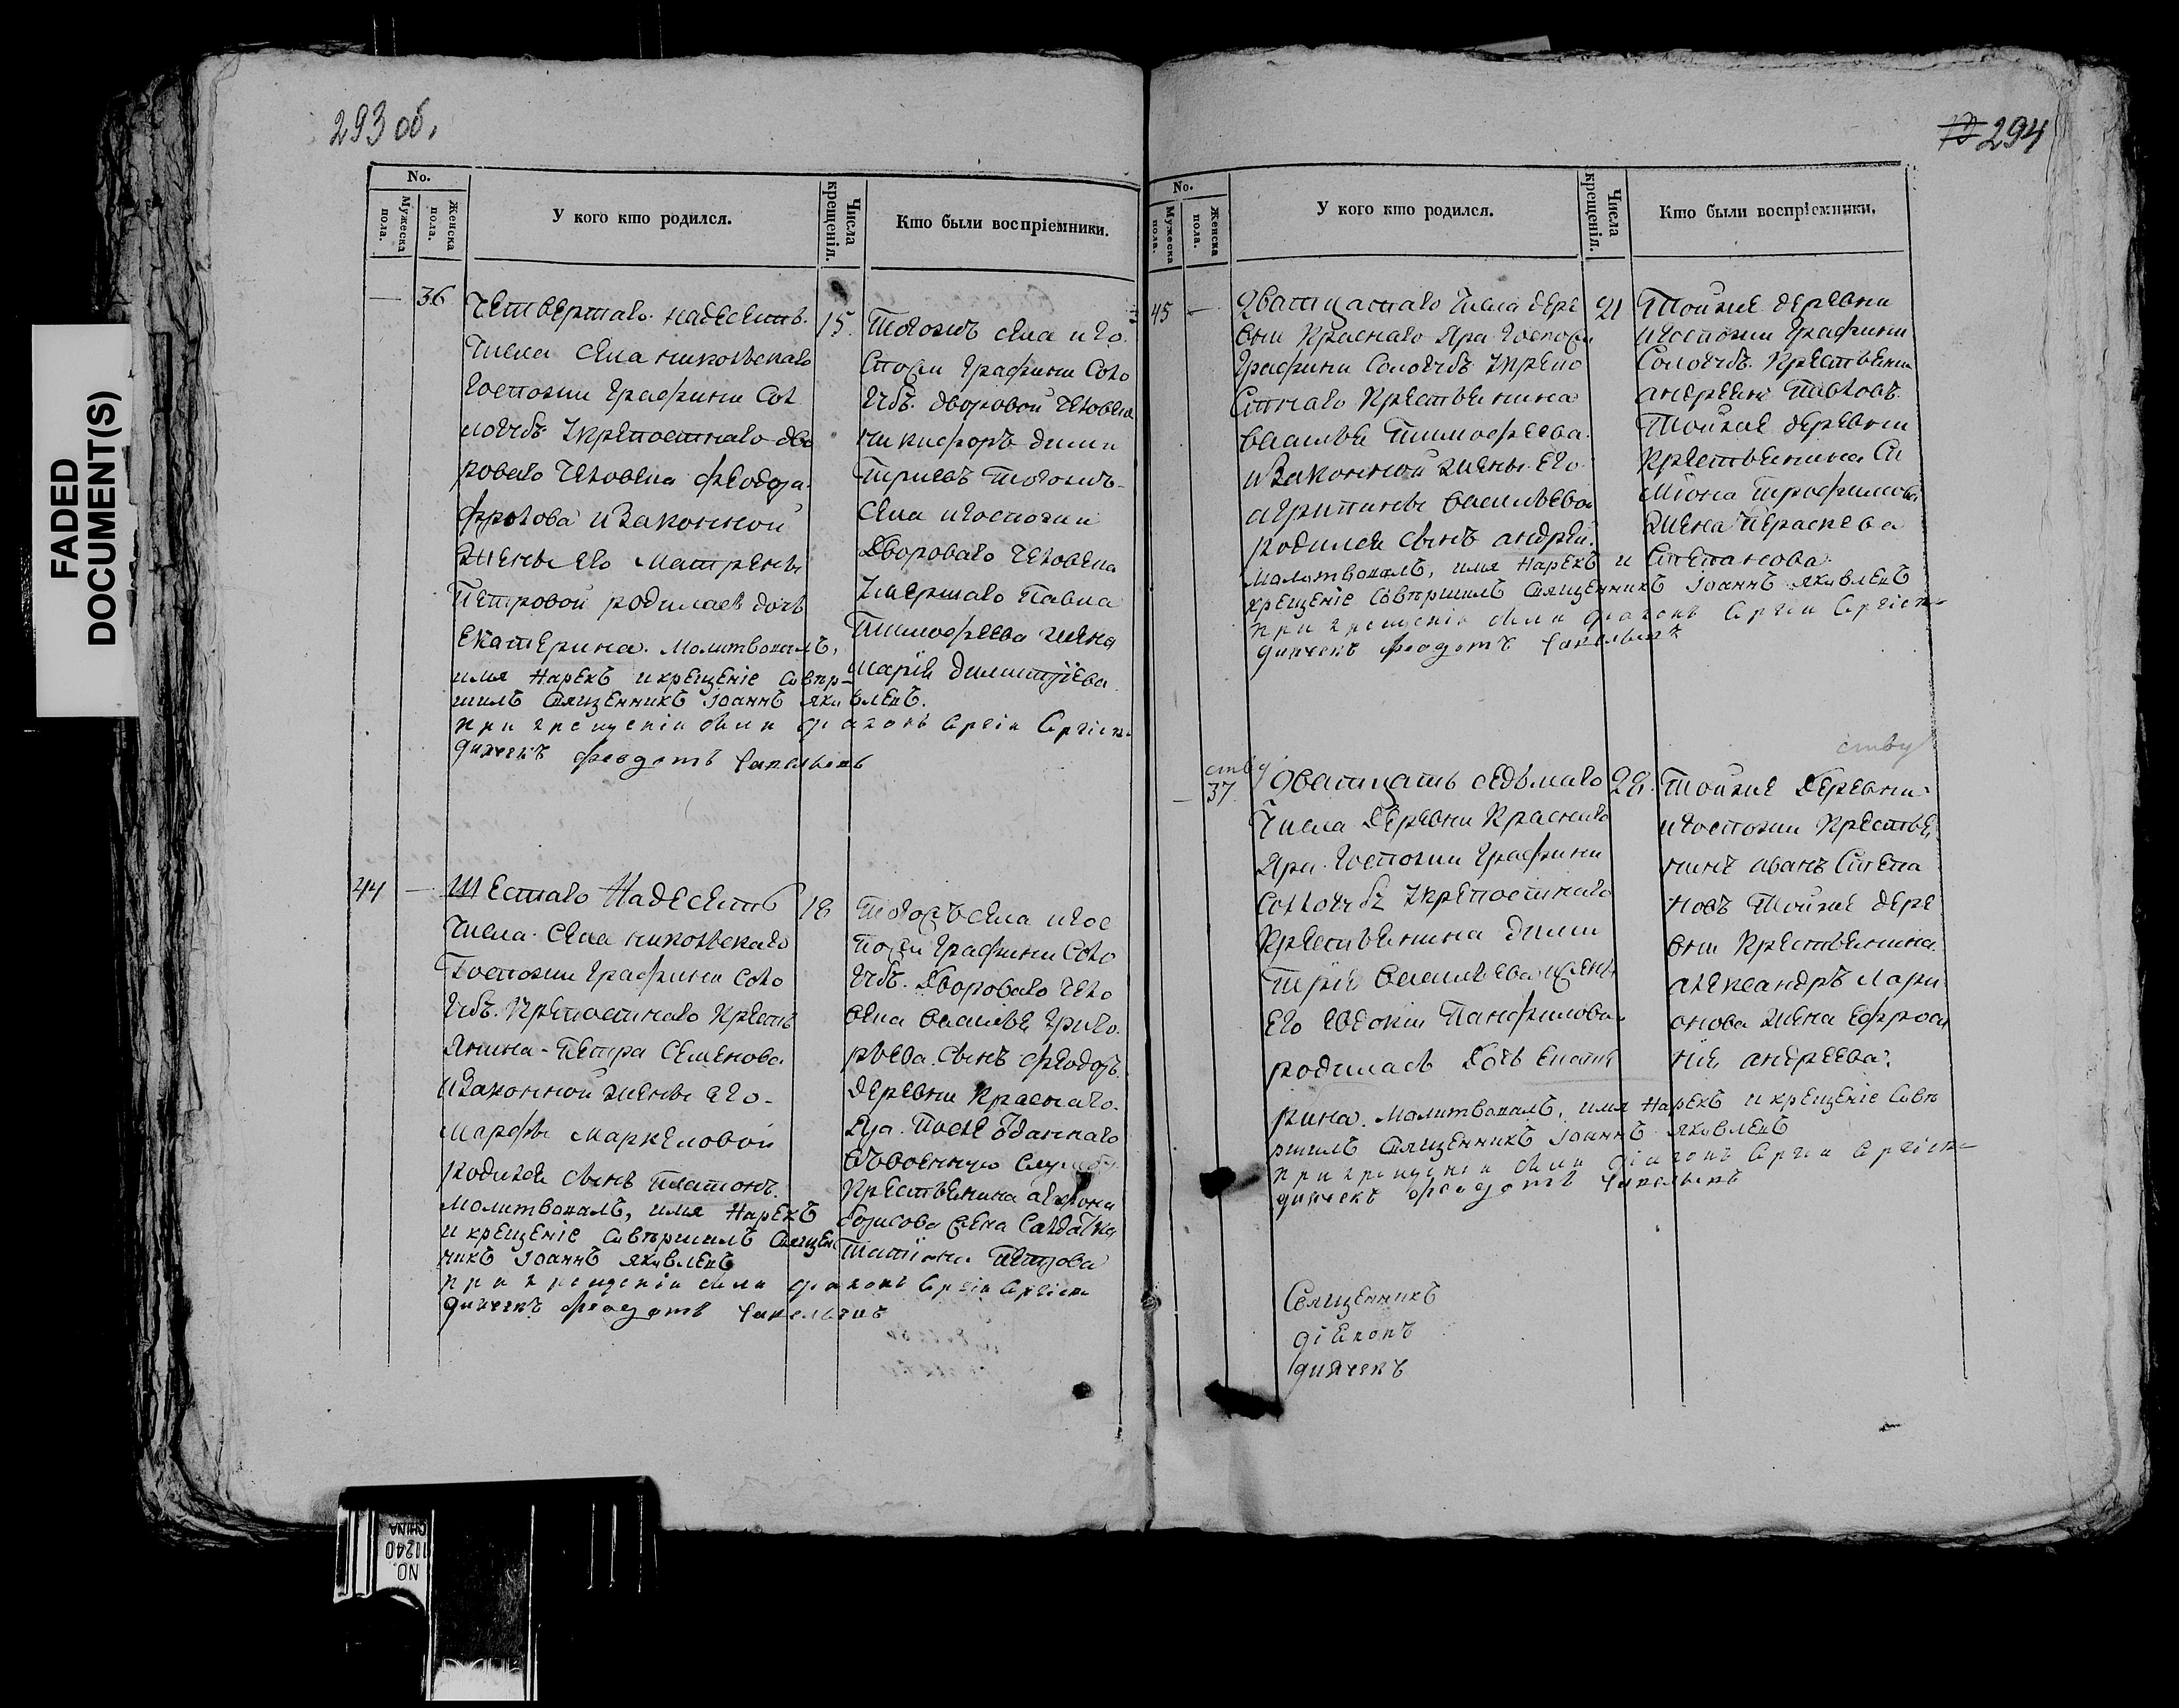 FADED
DOCUMENT(S)
293 об.
No.
Мужеска пола.
Женска пола.
У кого кто родился.
Числа крещенія.
Кто были воспріемники.
36
Четвертаго надесеть
15.
числа села никольскаго
госпожи графини Сол
логубъ крепостнаго дво
роваго человека феодора
фролова и законной
жены его матрены
Петровой родилась дочь
Екатерина. Молитвовалъ,
имя нарекъ и крещеніе совер-
шилъ священникъ Іоаннъ Яковлевъ.
при крещеніи были діаконъ
дьячекъ феодотъ
тогожъ села и го
спожи графини Соло
губъ. дворовой человекъ
никифоръ дими
триевъ тогожъ
села и госпожи
двороваго человека
умершаго Павла
Тимофеева жена
марія димитріева
44
Шестаго надесеть
18
числа села никольскаго
госпожи графини Соло
губъ. крепостнаго кресть
янина Петра Семенова
и законной жены его
марфы маркеловой
родился сынъ платонъ.
Молитвовалъ, имя нарекъ
и крещеніе совершилъ священ
никъ Іоаннъ Яковлевъ
при крещеніи были діаконъ
дьячекъ феодотъ
тогожъ села и гос
пожи графини Соло
губъ. двороваго чело
века василья григо
рьева. сынъ феодоръ.
деревни краснаго
Яра. после отданнаго
въ военную службу
крестьянина
борисова жена салдатка
татіяна петрова
294
No.
Мужеска пола.
Женска пола.
У кого кто родился.
Числа крещенія.
Кто были воспріемники.
45
Дватцатаго числа дере
21
вни Краснаго Яра госпожи
графини Сологубъ крепо
стнаго крестьенина
василья Тимофеева
и законной жены его
агрипины васильевой
родился сынъ андрей.
Молитвовалъ, имя нарекъ и
крещеніе совершилъ священникъ Іоаннъ Яковлевъ
при крещеніи были діаконъ
дьячекъ феодотъ
тойже деревни
и госпожи графини
Сологубъ. крестьенинъ
андреянъ Павловъ.
тойже деревни
крестьенина Си
міона трофимова
жена Параскева
Степанова
37
Дватцать седьмаго
28.
числа деревни Краснаго
Яра госпожи графини
Соллогубъ крепостнаго
крестьенина дими
трія васильева жены
его евдокіи Панфиловой
родилась дочь екате
рина. Молитвовалъ, имя нарекъ и крещеніе сове
ршилъ священникъ Іоаннъ Яковлевъ
при крещеніи были діаконъ
дьячекъ феодотъ
тойже деревни
и госпожи крестье
нинъ иванъ Степа
новъ тойже дере
вни крестьенина
александръ лари
онова жена ефроси
нія андреева.
Священникъ
діаконъ
дьячекъ
NO. 11240
CHINA